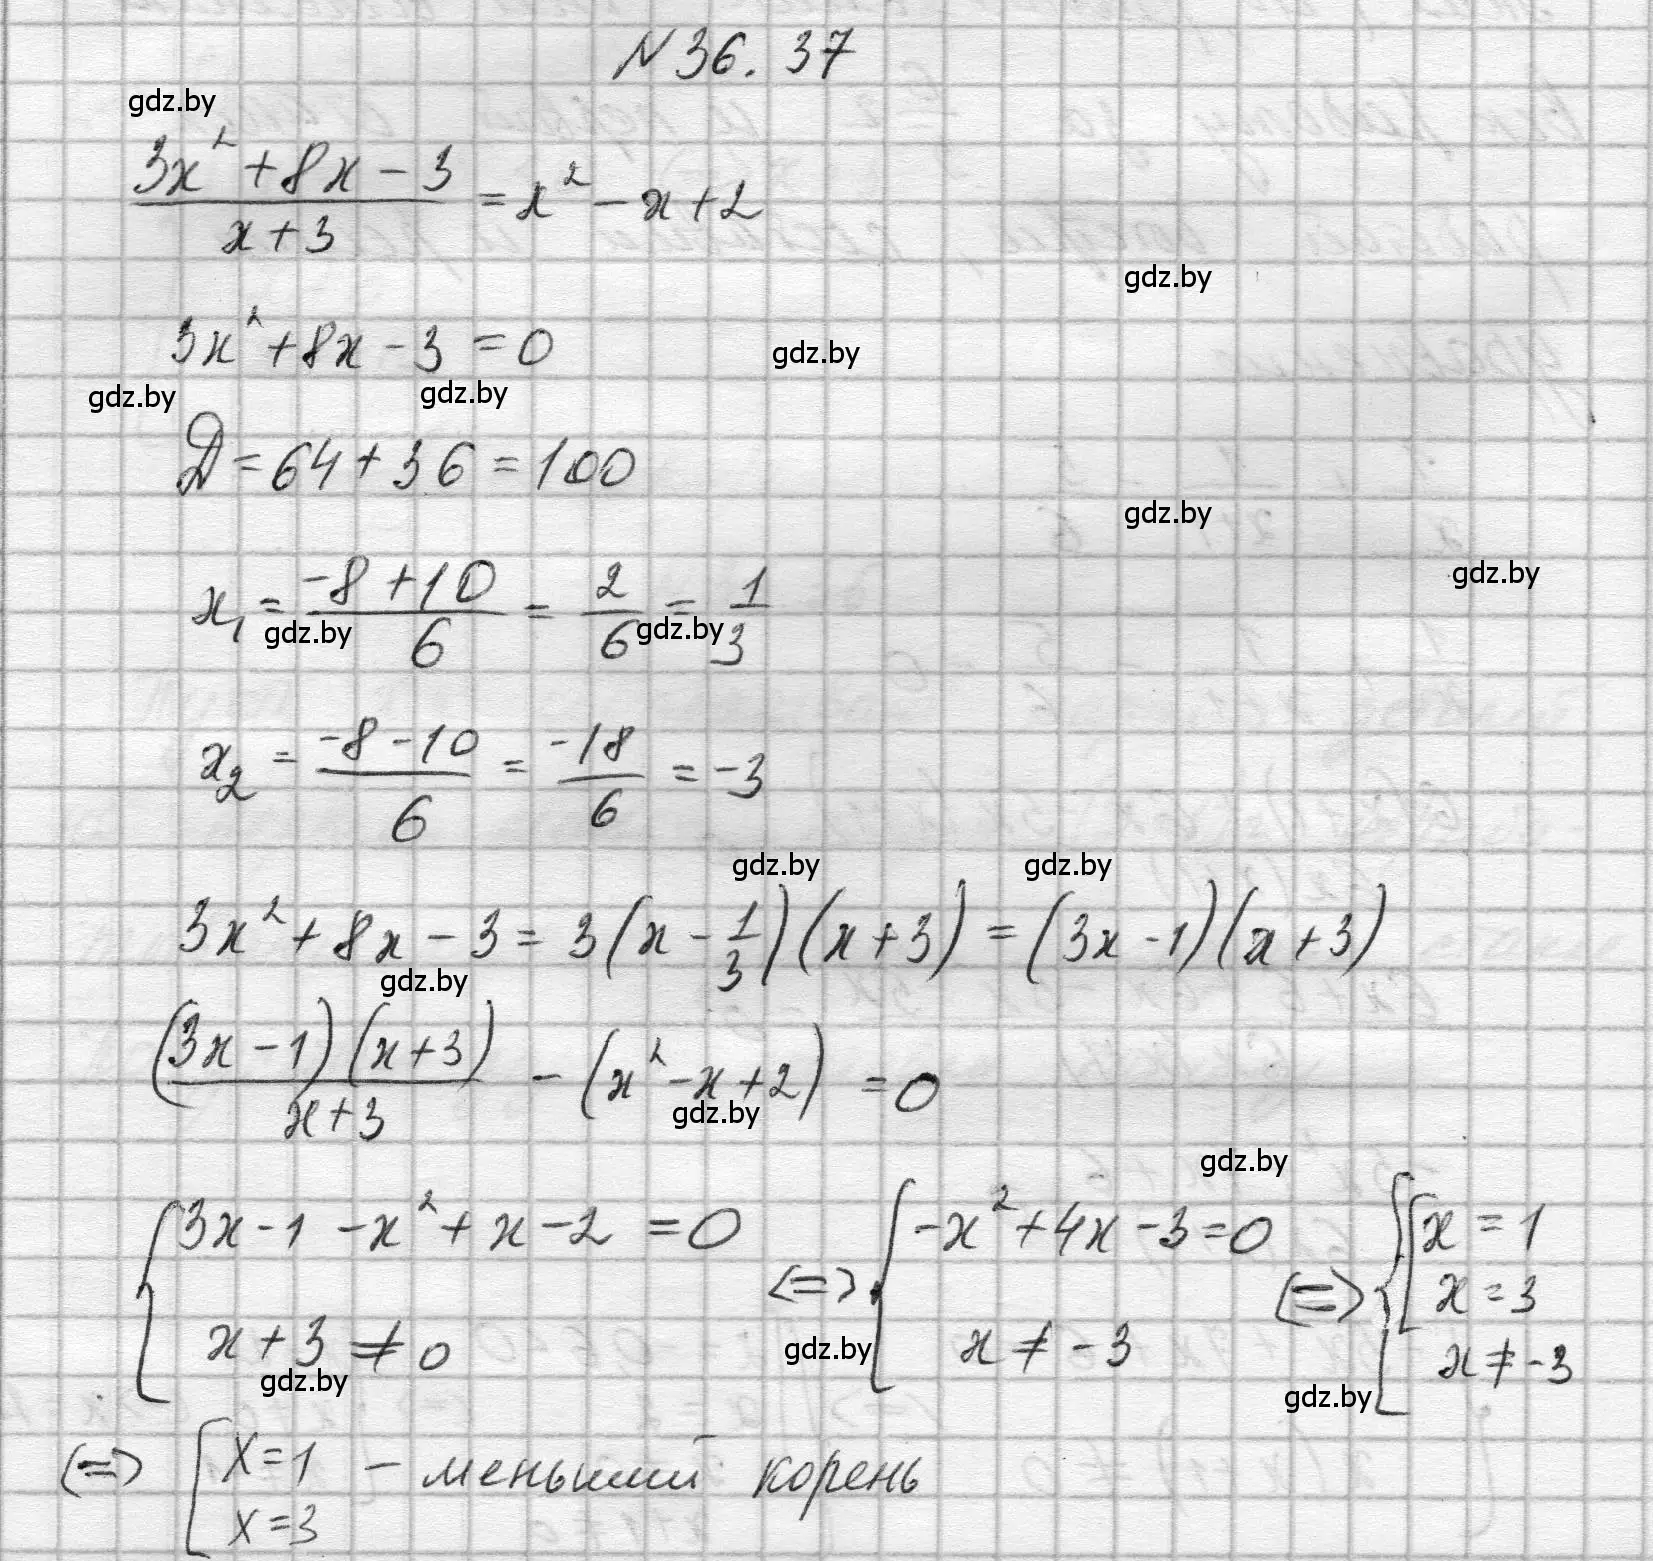 N 36. 37
gdz.by
(3x² + 8x - 3)/(x + 3) = x² - x + 2
gdz.by
3x² + 8x - 3 = 0
gdz.by
gdz.by gdz.by
D = 64 + 36 = 100
gdz.by
gdz.by
x₁ = (-8 + 10)/6 = 2/6 = 1/3
gdz.by gdz.by
x₂ = (-8 - 10)/6 = -18/6 = -3
gdz.by gdz.by
3x² + 8x - 3 = 3(x - 1/3)(x + 3) = (3x - 1)(x + 3)
gdz.by
((3x - 1)(x + 3))/(x + 3) - (x² - x + 2) = 0
gdz.by
gdz.by
{ 3x - 1 - x² + x - 2 = 0 <=> { -x² + 4x - 3 = 0 <=> { [ x = 1
x = 3
x + 3 ≠ 0 x ≠ -3 x ≠ -3
gdz.by gdz.by gdz.by
<=> [ x = 1 - меньший корень
x = 3